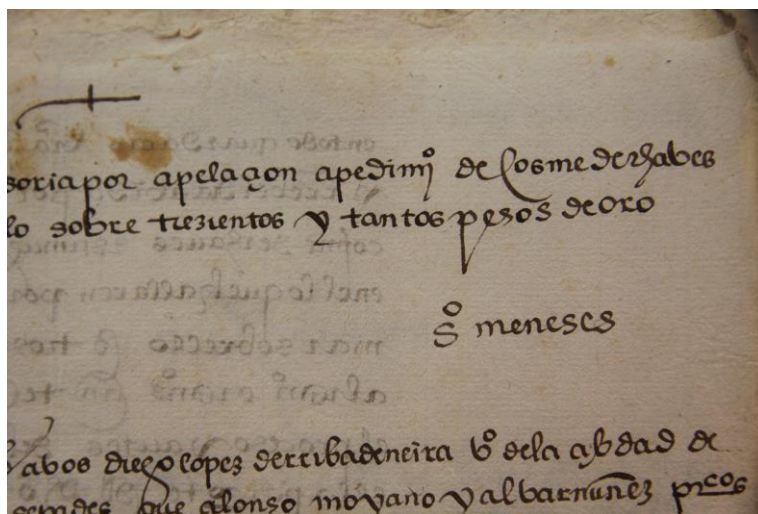 soria por apelaçon a pedimiº de Cosme de chabes
lo sobre trezientos y tantos pesos de oro
Sº meneses
a vos diego lopez de rribadeneira vº de la çibdad de
que alonso moyano y albar nuñez prcos